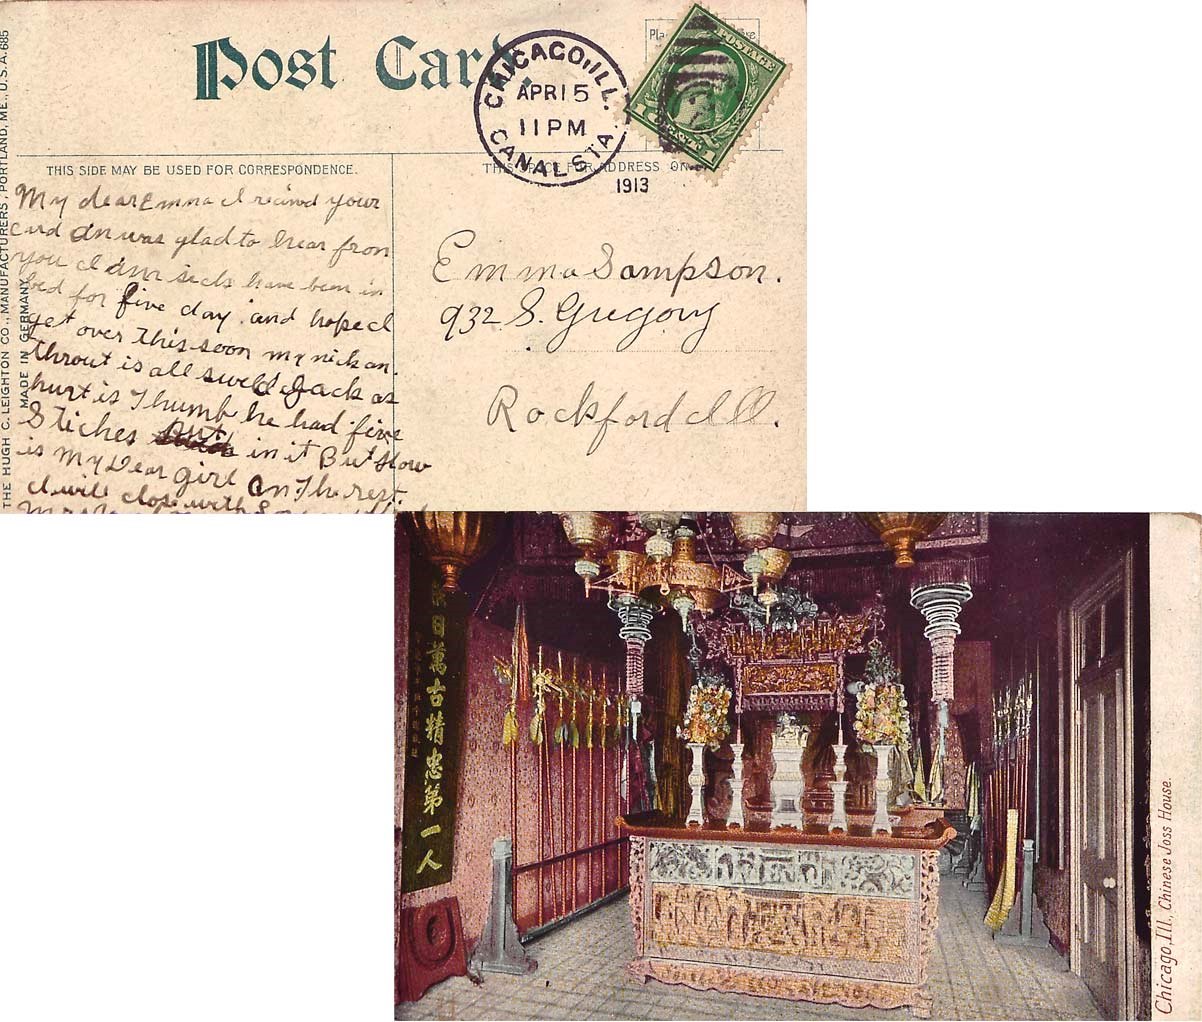 Post Card.
CHICAGO, ILL.
APR 15
11 PM
CANAL STA.
1913
POSTAGE
THIS SIDE MAY BE USED FOR CORRESPONDENCE.
THIS SPACE FOR ADDRESS ONLY
THE HUGH C. LEIGHTON CO., MANUFACTURERS, PORTLAND, ME., U.S.A. 685
MADE IN GERMANY
My dear Emma I recived your
card an was glad to hear from
you I am sick have been in
bed for five day. and hope I
get over this soon my nick an.
throut is all sweld Jack as
hurt is Thumb he had five
Stiches But in it But How
is My Dear girl an The rest.
I will close with
Emma Sampson.
932 S. Gregory
Rockford Ill.
日萬古精忠第一人
Chicago, Ill., Chinese Joss House.